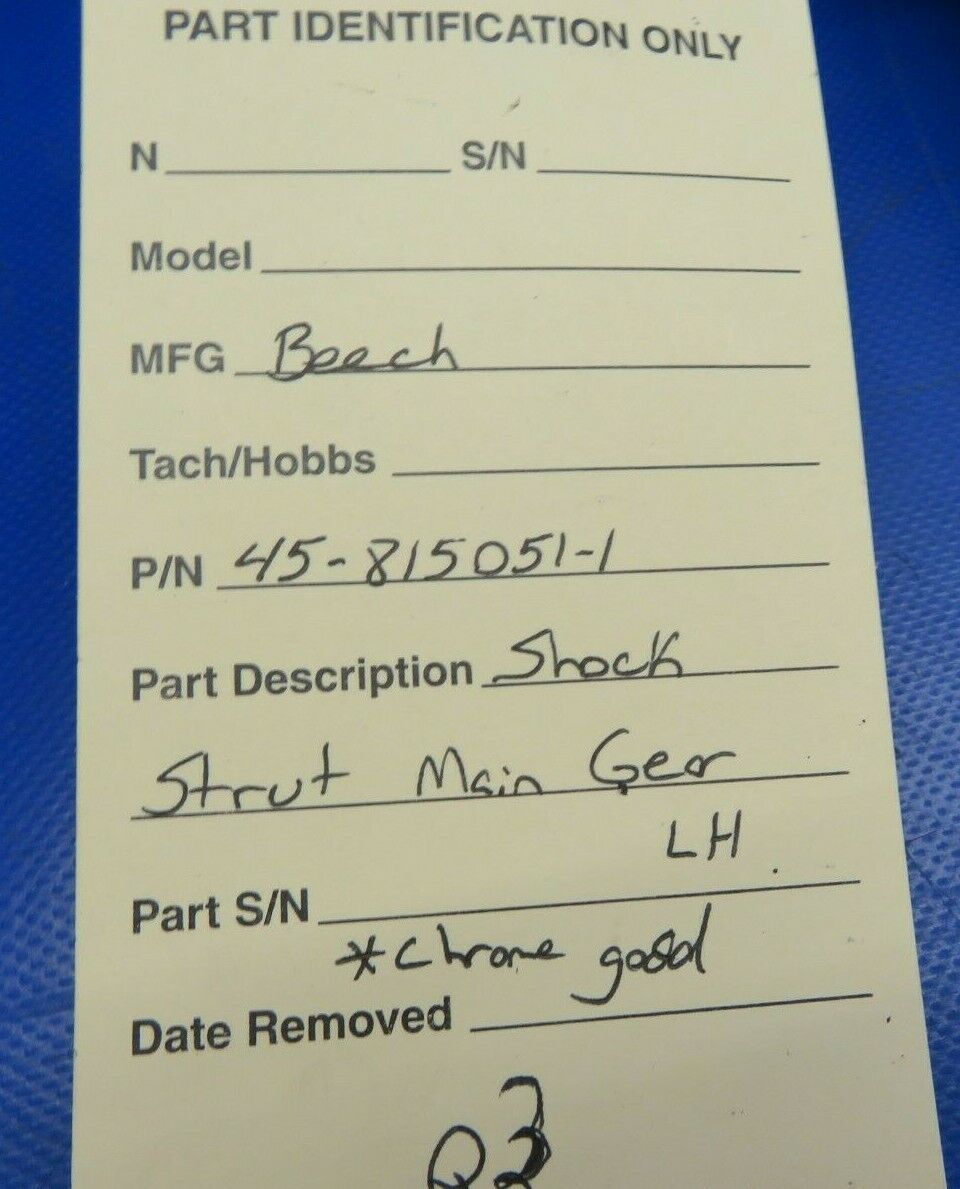 PART IDENTIFICATION ONLY
N S/N
Model
MFG Beech
Tach/Hobbs
P/N 45-815051-1
Part Description Shock
Strut Main Gear
LH
Part S/N
*Chrome good
Date Removed
Q3